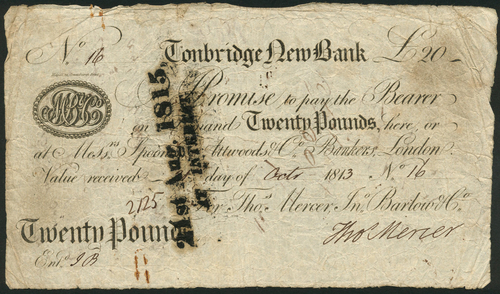 No 16 Tonbridge New Bank £20
Promise to pay the Bearer
on Demand Twenty Pounds, here or
at Mess.rs Spooner Attwoods & Co. Bankers, London
Value received day of Octr 1813 No 16
2125 For Thos. Mercer, Jno. Barlow & Co.
Twenty Pounds Thos Mercer
Entd. J B
21st Aug. 1815,